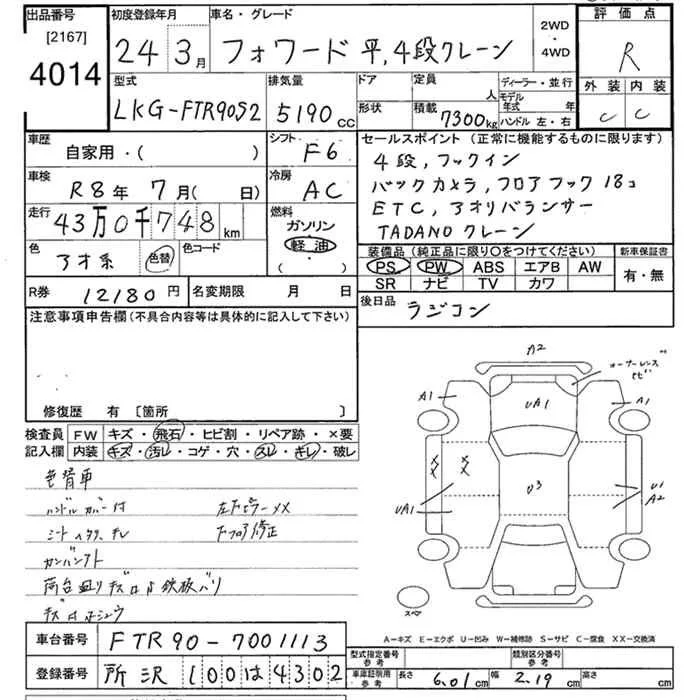 出品番号
[2167]
4014
初度登録年月
24 3月
車名・グレード
フォワード 平,4段クレーン
2WD
・
4WD
評価点
R
外装 内装
C C
型式
LKG-FTR90S2
排気量
5190 cc
ドア
形状
定員
人
積載
7300kg
ディーラー・並行
モデル
年式 年
ハンドル 左・右
車歴
自家用・( )
シフト
F6
車検
R8年 7月( 日)
冷房
AC
走行
43万0千748km
燃料
ガソリン
軽油
( ・ )
色
アオ系
色替
色コード
セールスポイント(正常に機能するものに限ります)
4段,フックイン
バックカメラ,フロアフック18コ
ETC,アオリバランサー
TADANOクレーン
装備品(純正品に限り○をつけてください)
PS PW ABS エアB AW
SR ナビ TV カワ
新車保証書
有・無
R券 12180円
名変期限 月 日
後日品
ラジコン
注意事項申告欄(不具合内容等は具体的に記入して下さい)
修復歴 有 [箇所 ]
検査員
記入欄
FW キズ・飛石・ヒビ割・リペア跡・×要
内装 キズ・汚レ・コゲ・穴・スレ・キレ・破レ
色替車
ハンドルカバー付
左Fピラーメメ
フロア修正
A2
コーナーレンズ
ヒビ
A1
UA1
A1
××
××
UA1
U3
U1
A2
スペア
A-キズ E-エクボ U-凹み W-補修跡 S-サビ C-腐食 XX-交換済
車台番号
FTR90-7001113
登録番号
所沢100は4302
型式指定番号
参考
類別区分番号
参考
車庫証明用
参考
長さ 6.01cm
幅 2.19cm
高さ cm